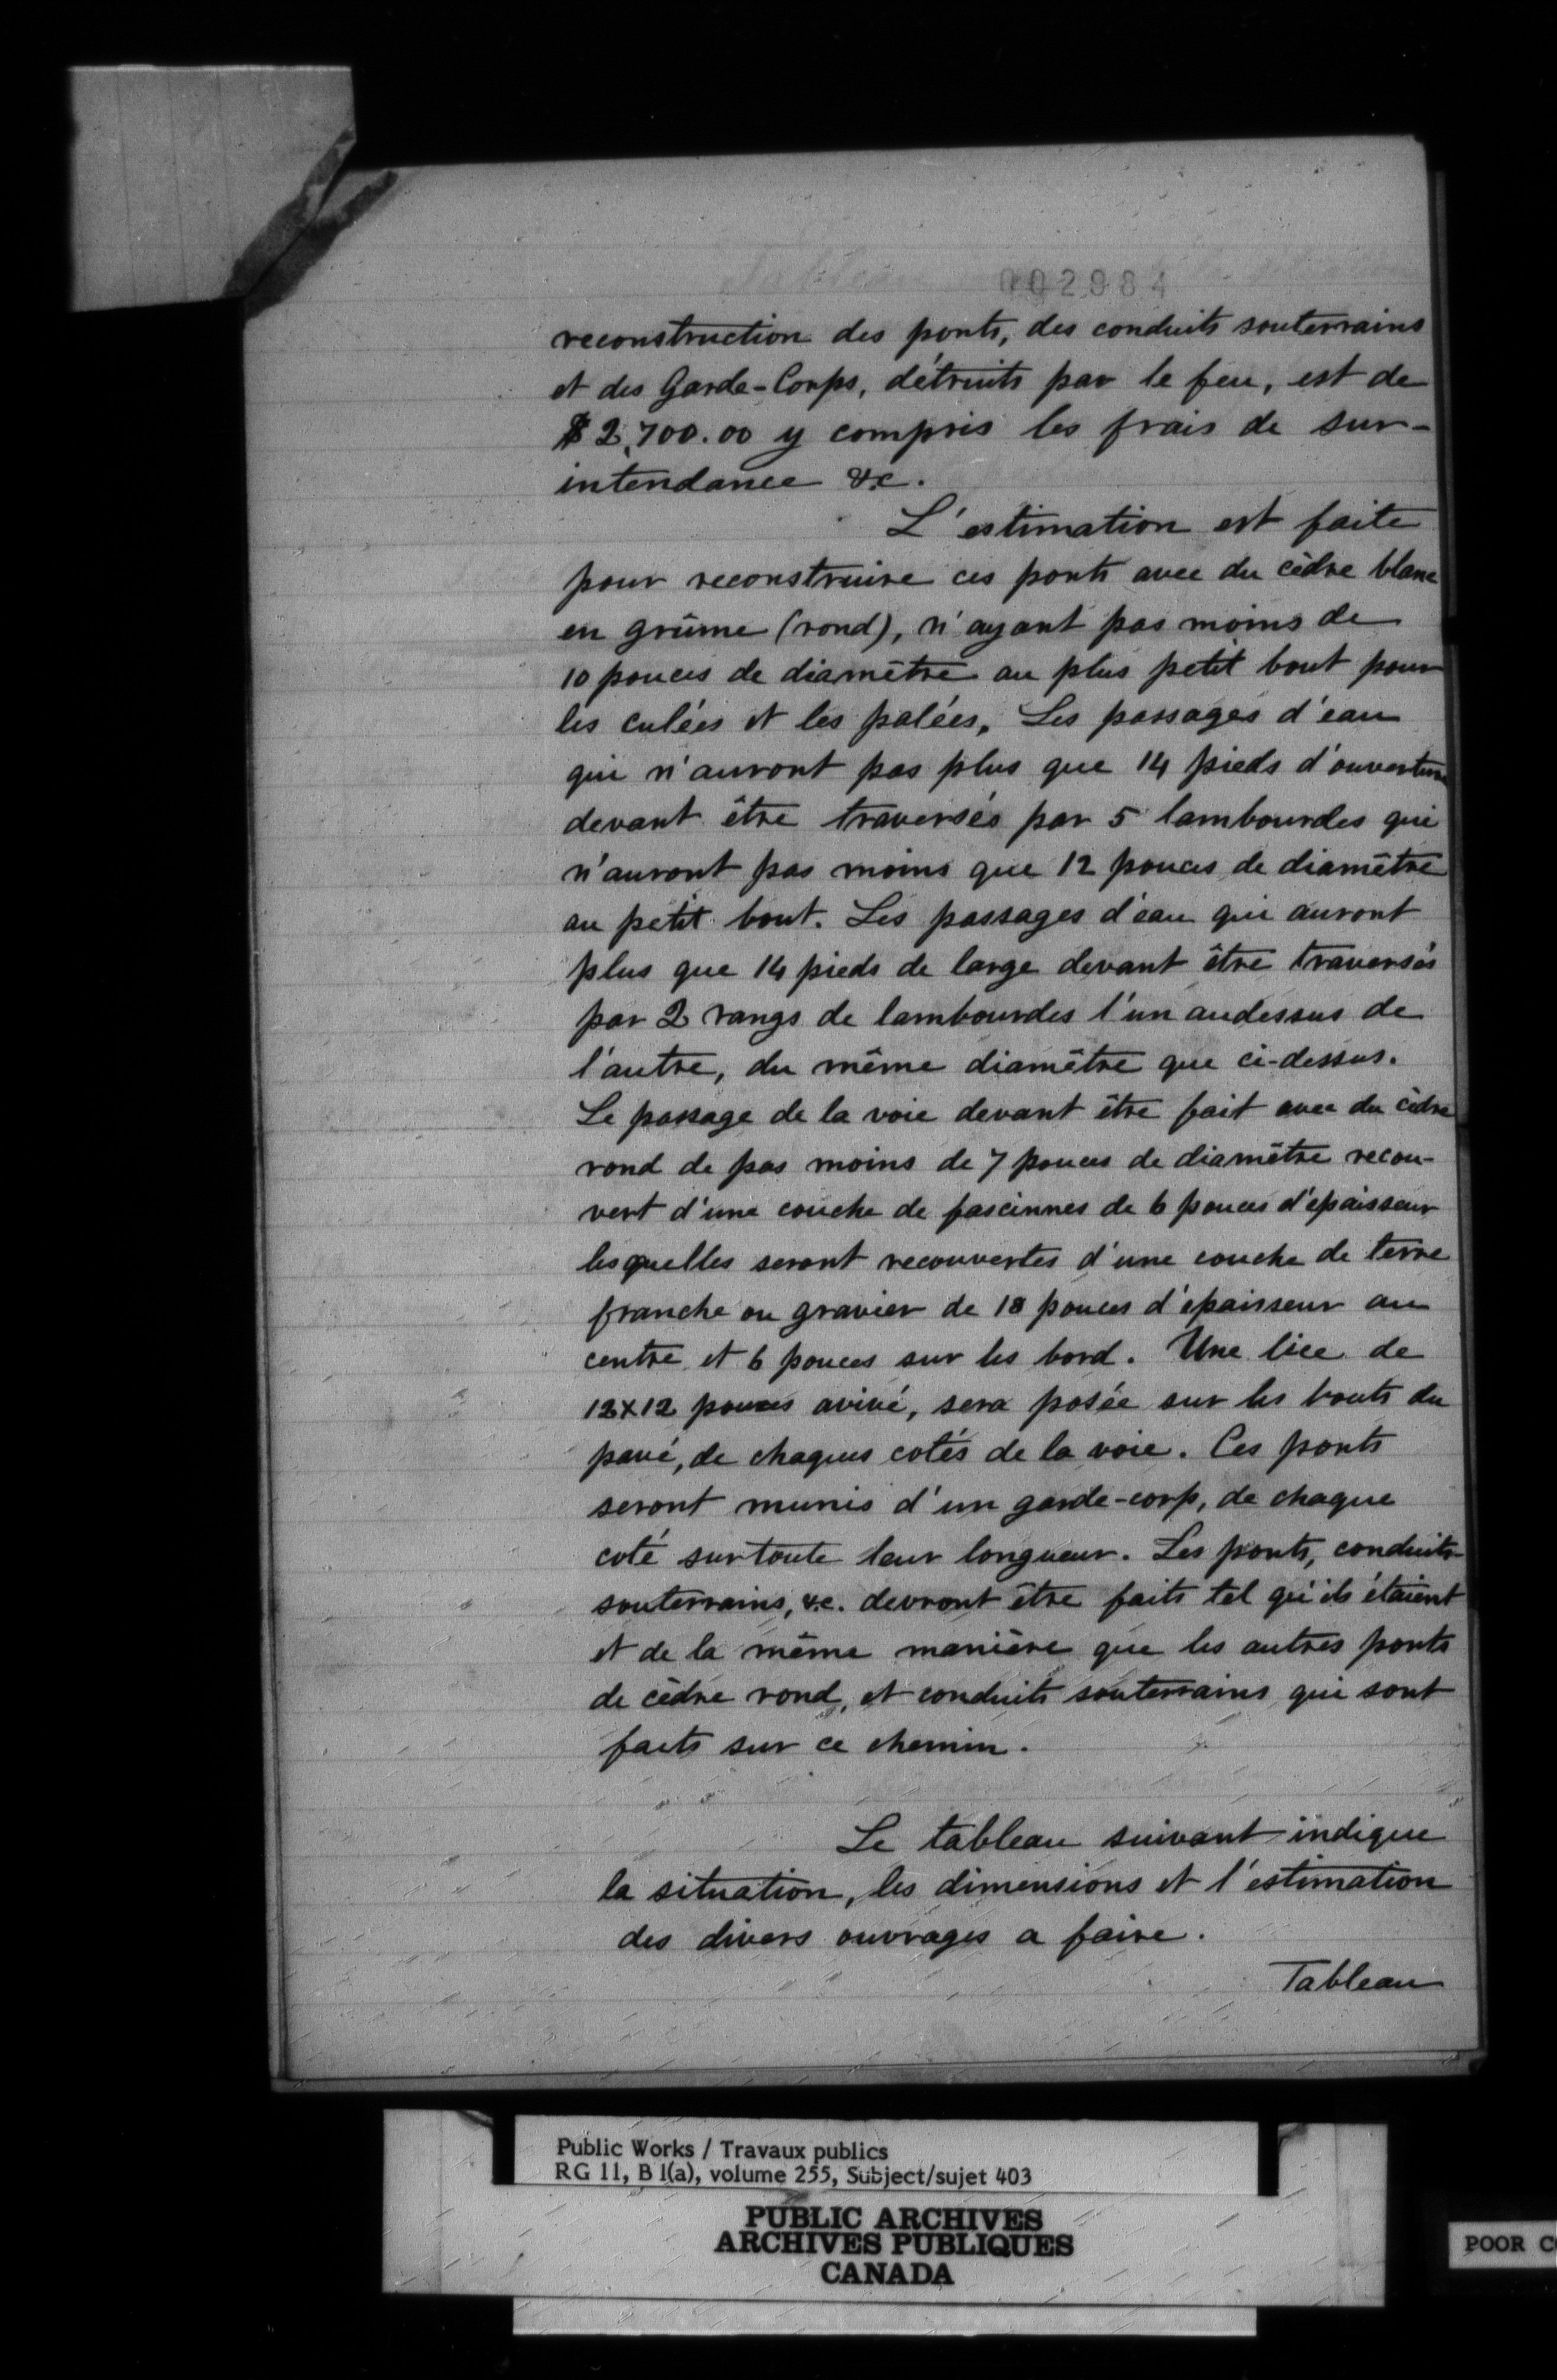 002984
reconstruction des ponts, des conduits souterrains
et des Garde-Corps, détruits par le feu, est de
$2,700.00 y compris les frais de sur-
intendance &c.
L'estimation est faite
pour reconstruire ces ponts avec du cèdre blanc
en grûme (rond), n'ayant pas moins de
10 pouces de diamêtre au plus petit bout pour
les culées et les palées. Les passages d'eau
qui n'auront pas plus que 14 pieds d'ouverture
devant être traversés par 5 lambourdes qui
n'auront pas moins que 12 pouces de diamêtre
au petit bout. Les passages d'eau qui auront
plus que 14 pieds de large devant être traversés
par 2 rangs de lambourdes l'un audessus de
l'autre, du même diamêtre que ci-dessus.
Le passage de la voie devant être fait avec du cèdre
rond de pas moins de 7 pouces de diamêtre recou-
vert d'une couche de fascinnes de 6 pouces d'épaisseur
lesquelles seront recouvertes d'une couche de terre
franche ou gravier de 18 pouces d'épaisseur au
centre et 6 pouces sur les bord. Une lice de
12x12 pouces avivé, sera posée sur les bouts du
pavé, de chaques cotés de la voie. Ces ponts
seront munis d'un garde-corp, de chaque
coté sur toute leur longueur. Les ponts, conduits
souterrains, &c. devront être faits tel qu'ils étaient
et de la même manière que les autres ponts
de cèdre rond, et conduits souterrains qui sont
faits sur ce chemin.
Le tableau suivant indique
la situation, les dimensions et l'estimation
des divers ouvrages a faire.
Tableau
Public Works / Travaux publics
RG 11, B 1(a), volume 255, Subject/sujet 403
PUBLIC ARCHIVES
ARCHIVES PUBLIQUES
CANADA
POOR